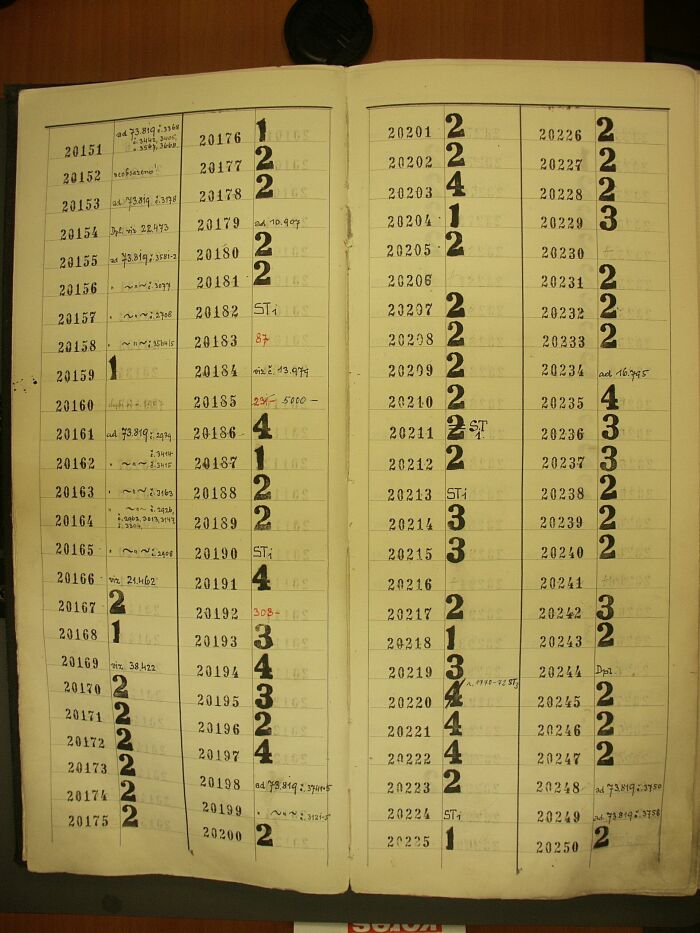 20151 ad 73.819 č.3368
č.3442, 3405,
č.3587, 3668
20152 neobsazeno
20153 ad 73.819 č.3178
20154 Dpl. viz 22.473
20155 ad 73.819 č.3581-2
20156 " ~"~ č.3077
20157 " ~"~ č.2708
20158 " ~"~ č.3564/5
20159 1
20160
20161 ad 73.819 č.2979
20162 " ~"~ č.3414
č.3415
20163 " ~"~ č.3163
20164 " ~"~ č.2926,
č.2963, 3013, 3147,
č.3304,
20165 " ~"~ č.2908
20166 viz 21.462
20167 2
20168 1
20169 viz 38.422
20170 2
20171 2
20172 2
20173 2
20174 2
20175 2
20176 1
20177 2
20178 2
20179 ad 10.907
20180 2
20181 2
20182 STi
20183 87
20184 viz č.13.979
20185 231- 5000-
20186 4
20187 1
20188 2
20189 2
20190 STi
20191 4
20192 308-
20193 3
20194 4
20195 3
20196 2
20197 4
20198 ad 73.819 č.3741-5
20199 " ~"~ č.3121-5
20200 2
20201 2
20202 2
20203 4
20204 1
20205 2
20206
20207 2
20208 2
20209 2
20210 2
20211 2 STi
20212 2
20213 STi
20214 3
20215 3
20216
20217 2
20218 1
20219 3
20220 4 r. 1970-72 STi
20221 4
20222 4
20223 2
20224 STi
20225 1
20226 2
20227 2
20228 2
20229 3
20230
20231 2
20232 2
20233 2
20234 ad 16.795
20235 4
20236 3
20237 3
20238 2
20239 2
20240 2
20241
20242 3
20243 2
20244 Dpl
20245 2
20246 2
20247 2
20248 ad 73.819 č.3750
20249 ad 73.819 č.3758
20250 2
KORES